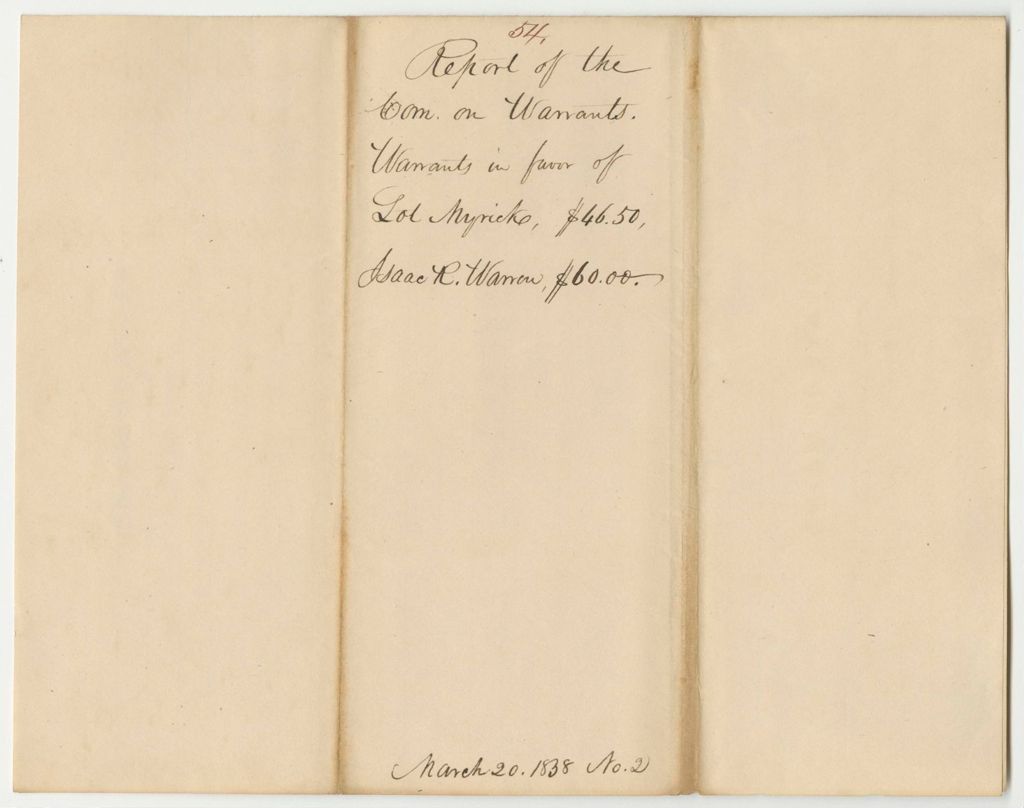 54.
Report of the
Com. on Warrants.
Warrants in favor of
Lot Myrick, $46.50,
Isaac R. Warren, $60.00.
March 20. 1838 No. 2